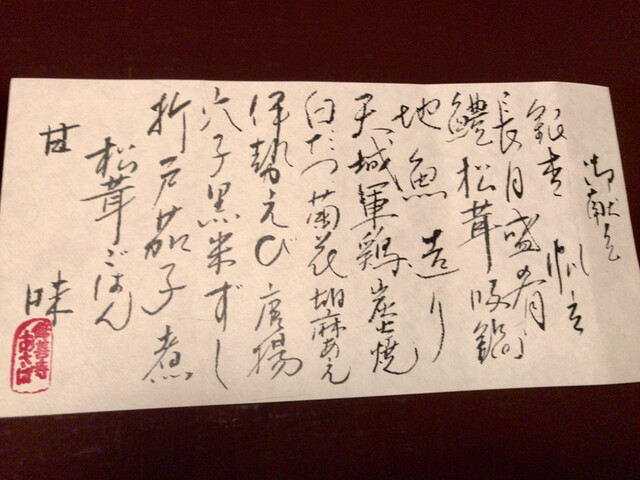 御献立
銀杏 帆立
長月盛肴
鱧松茸吸鍋
地魚造り
天城軍鶏炭火焼
白だつ菊花胡麻あえ
伊勢えび唐揚
穴子黒米ずし
折戸茄子煮
松茸ごはん
甘味